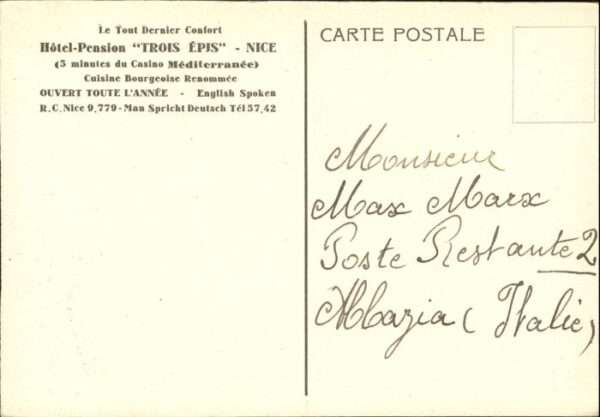 Le Tout Dernier Confort
Hôtel-Pension "TROIS ÉPIS" - NICE
(5 minutes du Casino Méditerranée)
Cuisine Bourgeoise Renommée
OUVERT TOUTE L'ANNÉE - English Spoken
R.C. Nice 9,779 - Man Spricht Deutsch Tél 57,42
CARTE POSTALE
Monsieur
Max Marx
Poste Restante 2
Abbazia (Italie)